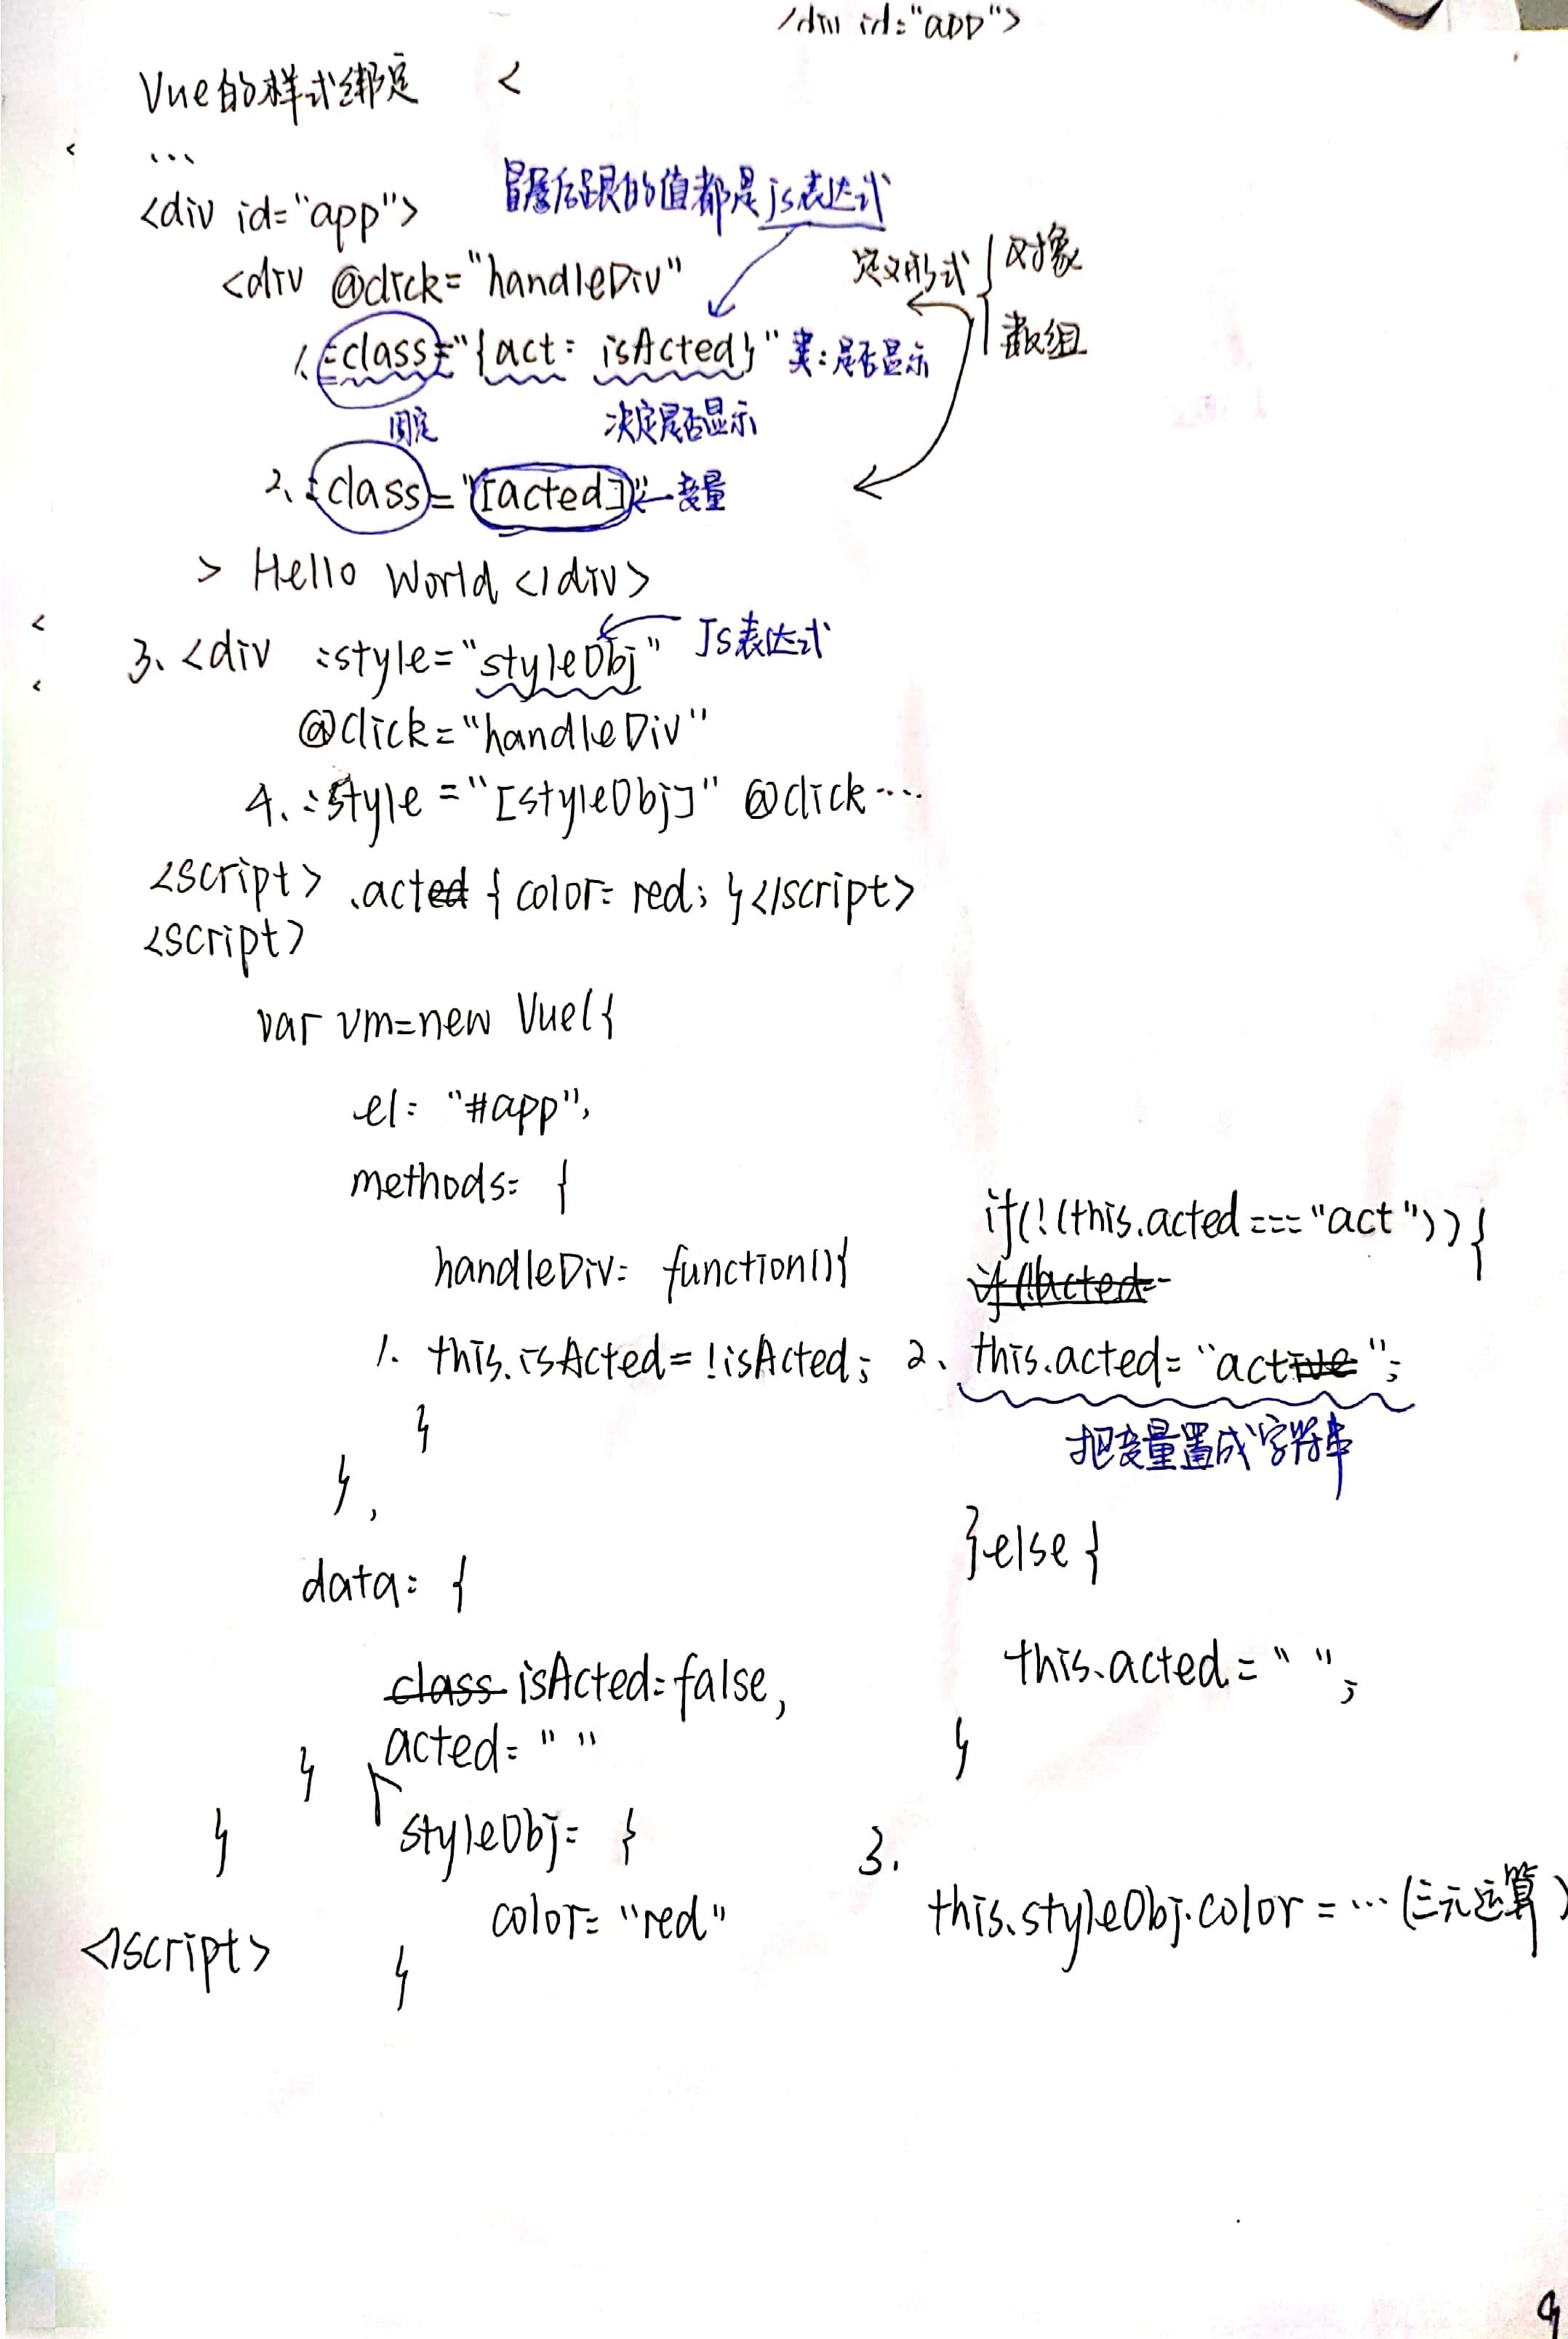 <div id="app">
Vue的样式绑定 <
< ...
冒号后跟的值都是js表达式
<div id="app">
<div @click="handleDiv"
定义形式 { 对象
数组
1. :class="{act: isActed}" 类:是否显示
固定 决定是否显示
2、:class="[acted]" ← 变量
> Hello World </div>
<
3、<div :style="styleObj" JS表达式
<
@click="handleDiv"
4、:style="[styleObj]" @click····
<script> .act { color: red; }</script>
<script>
var vm=new Vue({
el: "#app",
methods: {
handleDiv: function(){
1. this.isActed=!isActed;
}
},
data: {
isActed: false,
acted: " "
}
styleObj: {
}
color: "red"
}
</script>
if(!(this.acted==="act")){
2、this.acted="act";
把变量置成字符串
}else{
this.acted=" ";
}
3.
this.styleObj.color=···(三元运算)
9